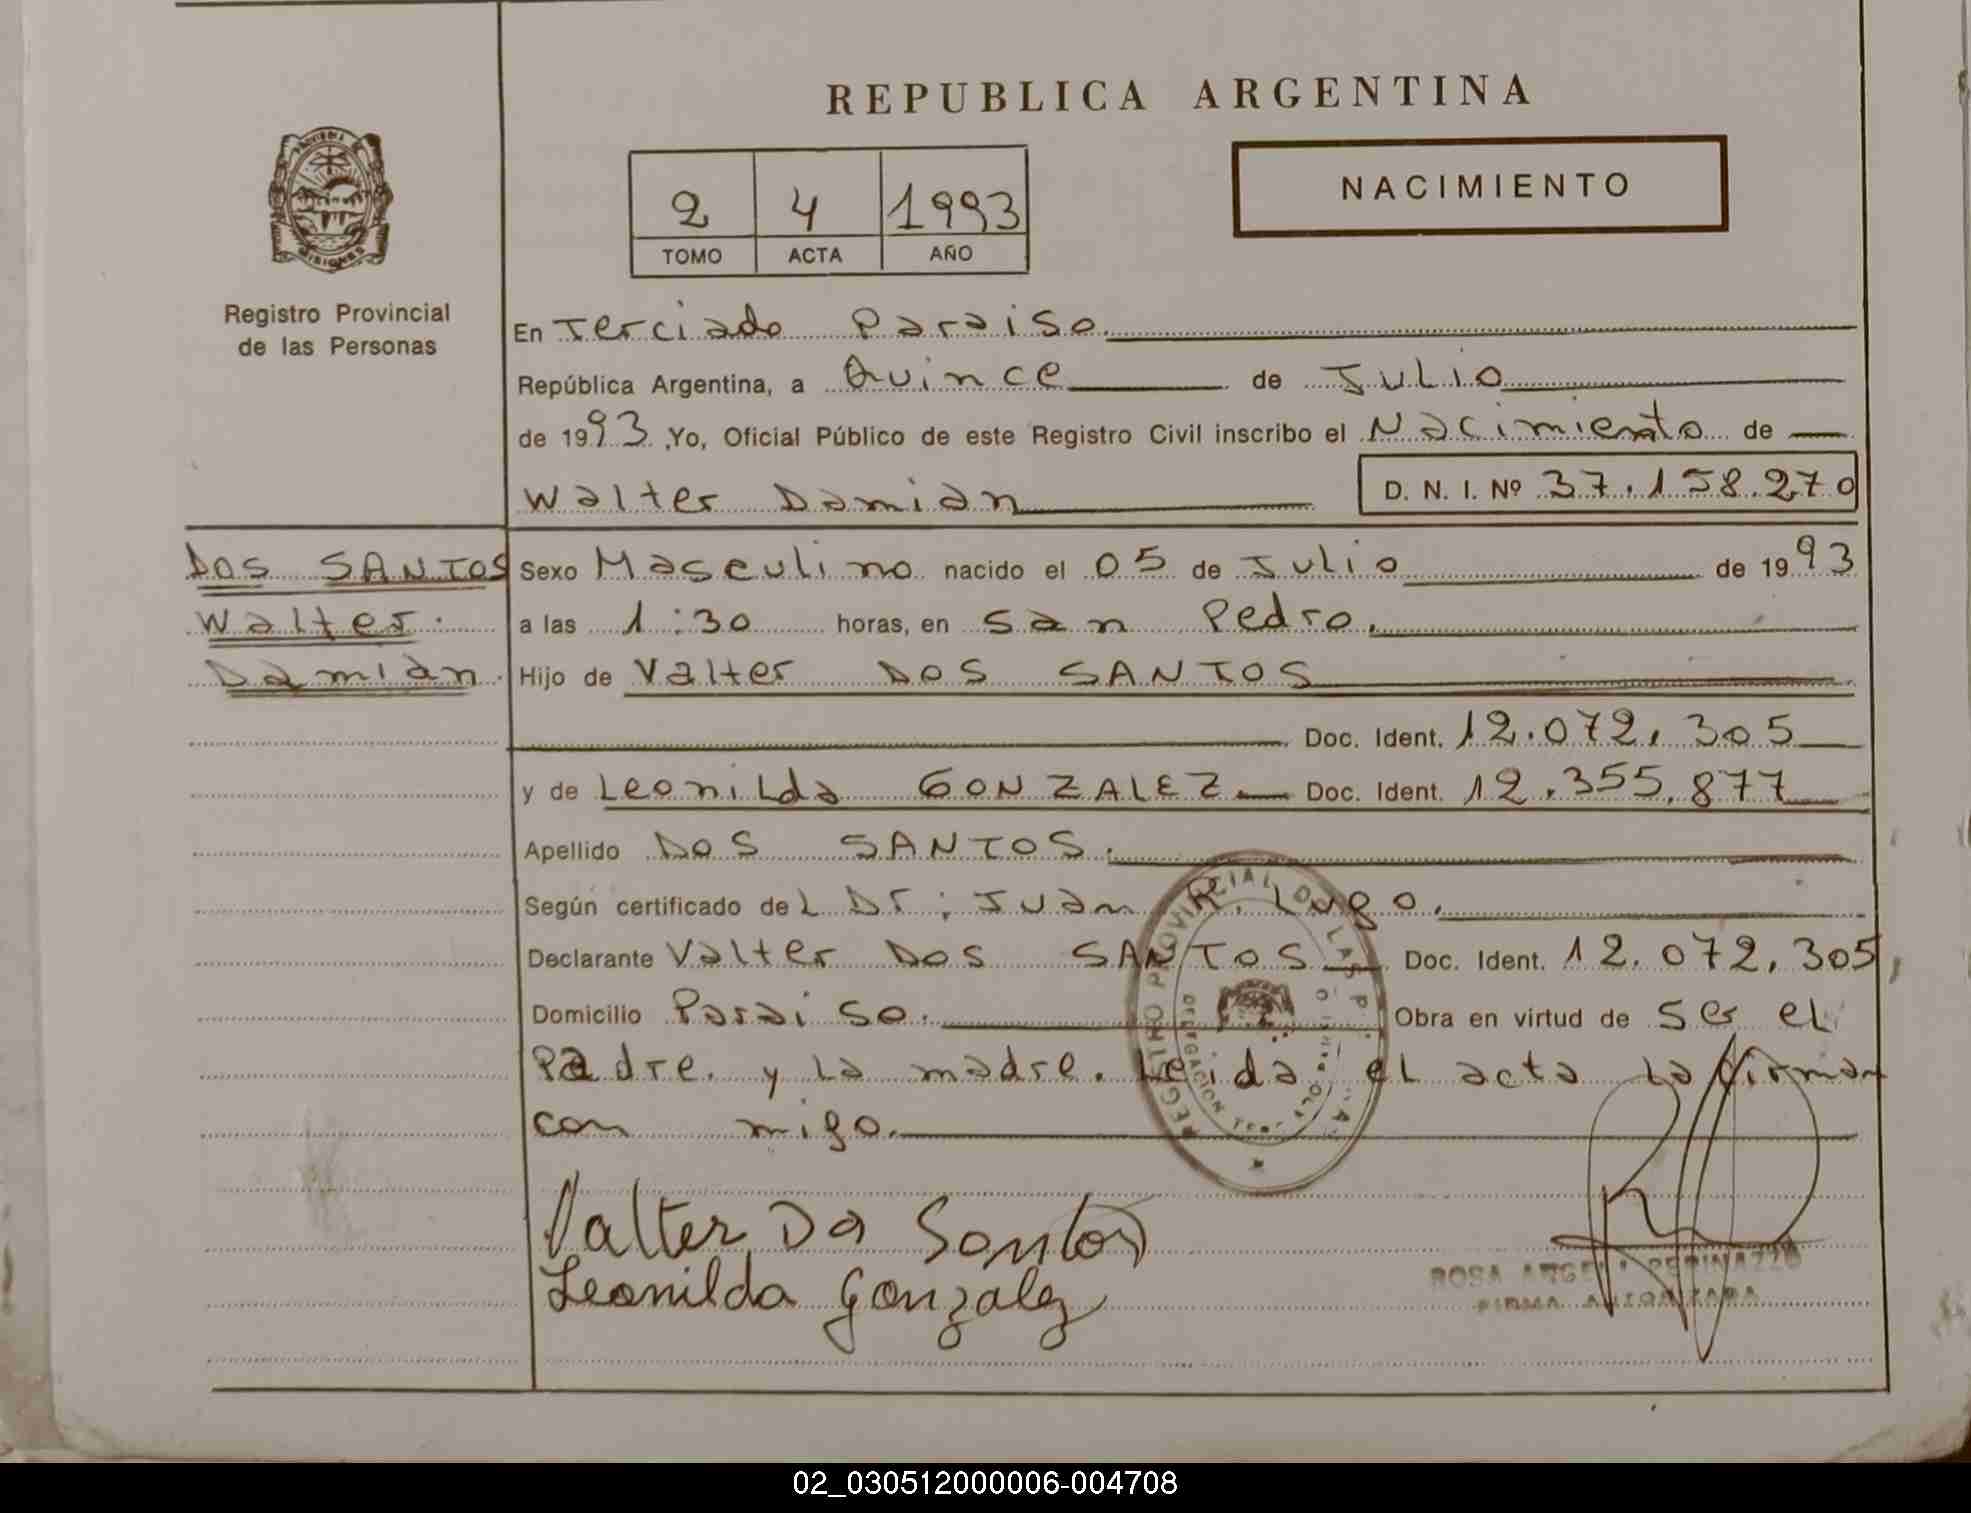 REPUBLICA ARGENTINA
NACIMIENTO
2 4 1993
TOMO ACTA AÑO
PROVINCIA DE
MISIONES
Registro Provincial
de las Personas
En Terciado Paraiso.
República Argentina, a Quince de Julio
de 1993. Yo, Oficial Público de este Registro Civil inscribo el Nacimiento de
Walter Damián D. N. I. Nº 37.158.270
DOS SANTOS
Walter.
Damián.
Sexo Masculino nacido el 05 de Julio de 1993
a las 1:30 horas, en San Pedro.
Hijo de Valter DOS SANTOS
Doc. Ident. 12.072.305
y de Leonilda GONZALEZ. Doc. Ident. 12.355.877
Apellido DOS SANTOS.
Según certificado del Dr: Juan R. Lugo.
Declarante Valter DOS SANTOS Doc. Ident. 12.072.305,
Domicilio Paraiso. Obra en virtud de ser el
Padre. y la madre. Leida el acta la firman
con migo.
REGISTRO PROVINCIAL DE LAS P
DELEGACION
Valter Do Santos
Leonilda Gonzalez
ROSA PEDINAZZO
FIRMA AUTORIZADA
02_030512000006-004708